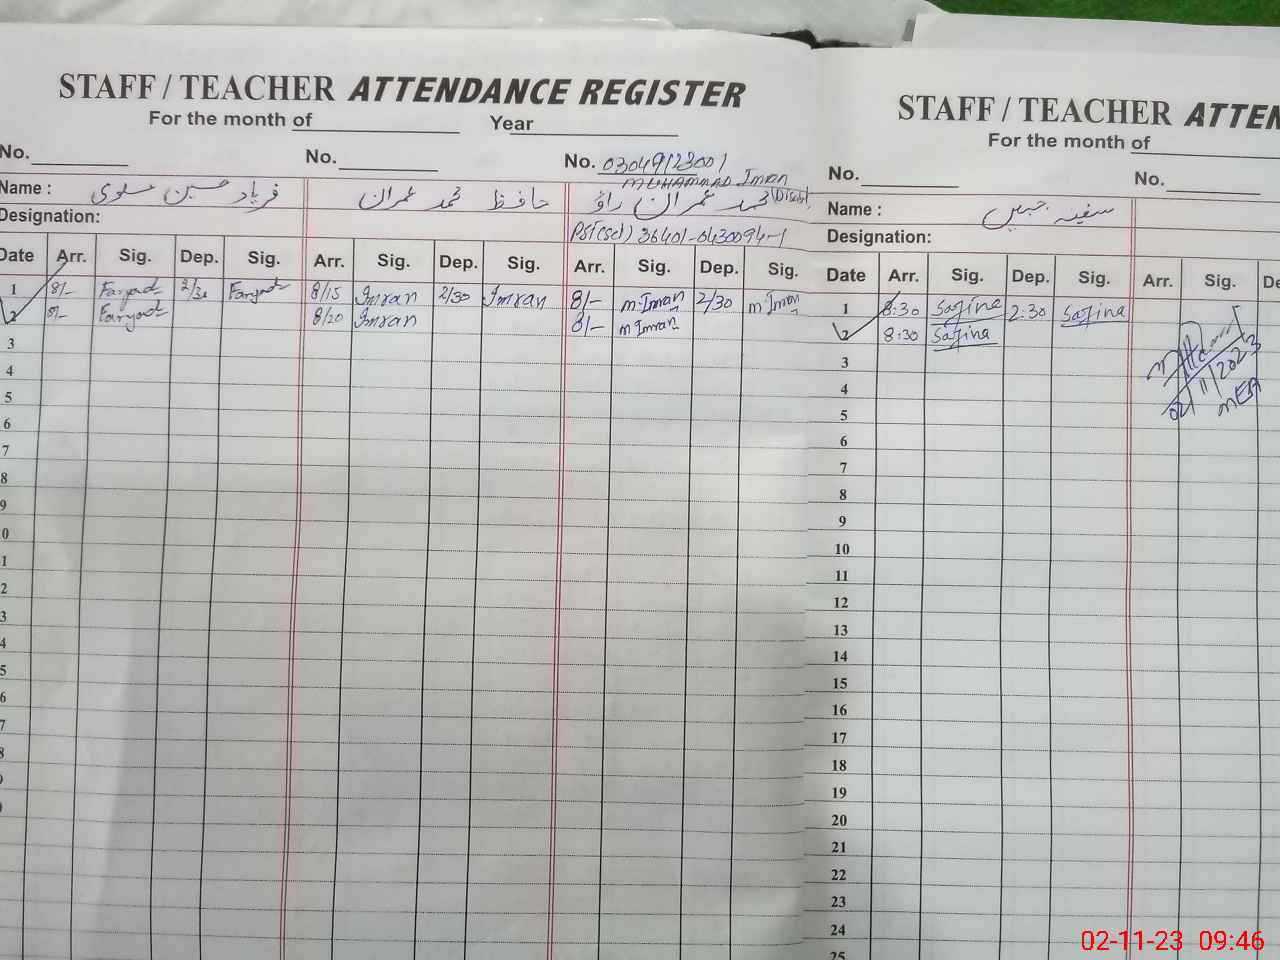 STAFF / TEACHER ATTENDANCE REGISTER
For the month of Year
No. No. No. 03049123001
MUHAMMAD Imran
Name : فریاد حسین حافظ محمد عمران محمد عمران راؤ
Designation: 36401-0430094-1
Date Arr. Sig. Dep. Sig. Arr. Sig. Dep. Sig. Arr. Sig. Dep. Sig.
1 8/- Faryad 2/30 Faryad 8/15 Imran 2/30 Imran 8/- m.Imran 2/30 m Imran
2 8/- Faryad 8/20 Imran 8/- m Imran
3
4
5
6
7
8
9
0
1
2
3
4
5
6
7
8
STAFF / TEACHER ATTEN
For the month of
No. No.
Name : سفینہ جبیں
Designation:
Date Arr. Sig. Dep. Sig. Arr. Sig. De
1 8:30 Safina 2:30 Safina
2 8:30 Safina
3
02/11/2023
4
MEA
5
6
7
8
9
10
11
12
13
14
15
16
17
18
19
20
21
22
23
24
25
02-11-23 09:46